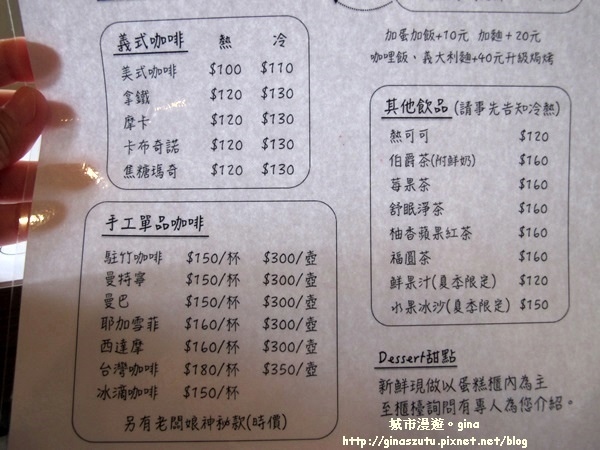 義式咖啡 熱 冷
美式咖啡 $100 $110
拿鐵 $120 $130
摩卡 $120 $130
卡布奇諾 $120 $130
焦糖瑪奇 $120 $130
手工單品咖啡
駐竹咖啡 $150/杯 $300/壺
曼特寧 $150/杯 $300/壺
曼巴 $150/杯 $300/壺
耶加雪菲 $160/杯 $300/壺
西達摩 $160/杯 $300/壺
台灣咖啡 $180/杯 $350/壺
冰滴咖啡 $150/杯
另有老闆娘神秘款(時價)
加蛋加飯+10元 加麵+20元
咖哩飯、義大利麵+40元升級焗烤
其他飲品(請事先告知冷熱)
熱可可 $120
伯爵茶(附鮮奶) $160
莓果茶 $160
舒眠淨茶 $160
柚香蘋果紅茶 $160
福圓茶 $160
鮮果汁(夏季限定) $120
水果冰沙(夏季限定) $150
Dessert甜點
新鮮現做以蛋糕櫃內為主
至櫃檯詢問有專人為您介紹。
城市漫遊。gina
http://ginaszutu.pixnet.net/blog